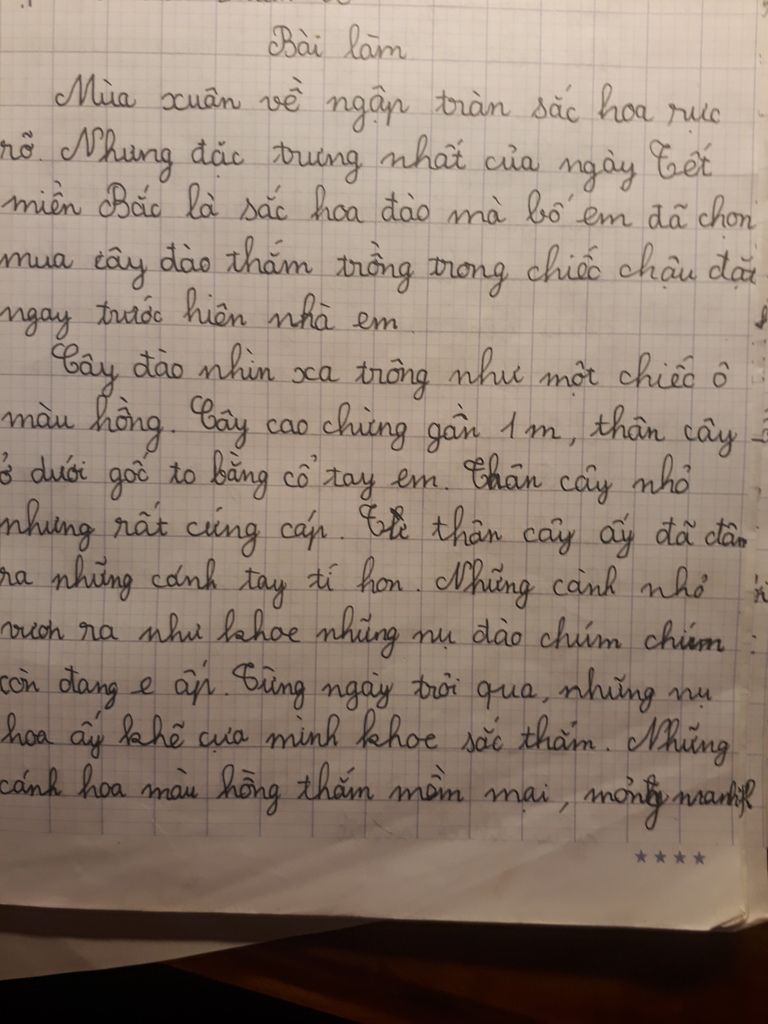 Bài làm
Mùa xuân về ngập tràn sắc hoa rực
rỡ. Nhưng đặc trưng nhất của ngày Tết
miền Bắc là sắc hoa đào mà bố em đã chọn
mua cây đào thắm trồng trong chiếc chậu đặt
ngay trước hiên nhà em
Cây đào nhìn xa trông như một chiếc ô
màu hồng. Cây cao chừng gần 1m, thân cây
ở dưới gốc to bằng cổ tay em. Thân cây nhỏ
nhưng rất cứng cáp. Từ thân cây ấy đã đâm
ra những cánh tay tí hon. Những cành nhỏ
vươn ra như khoe những nụ đào chúm chím
còn đang e ấp. Từng ngày trôi qua, những nụ
hoa ấy khẽ cựa mình khoe sắc thắm. Những
cánh hoa màu hồng thắm mềm mại, mỏng manh